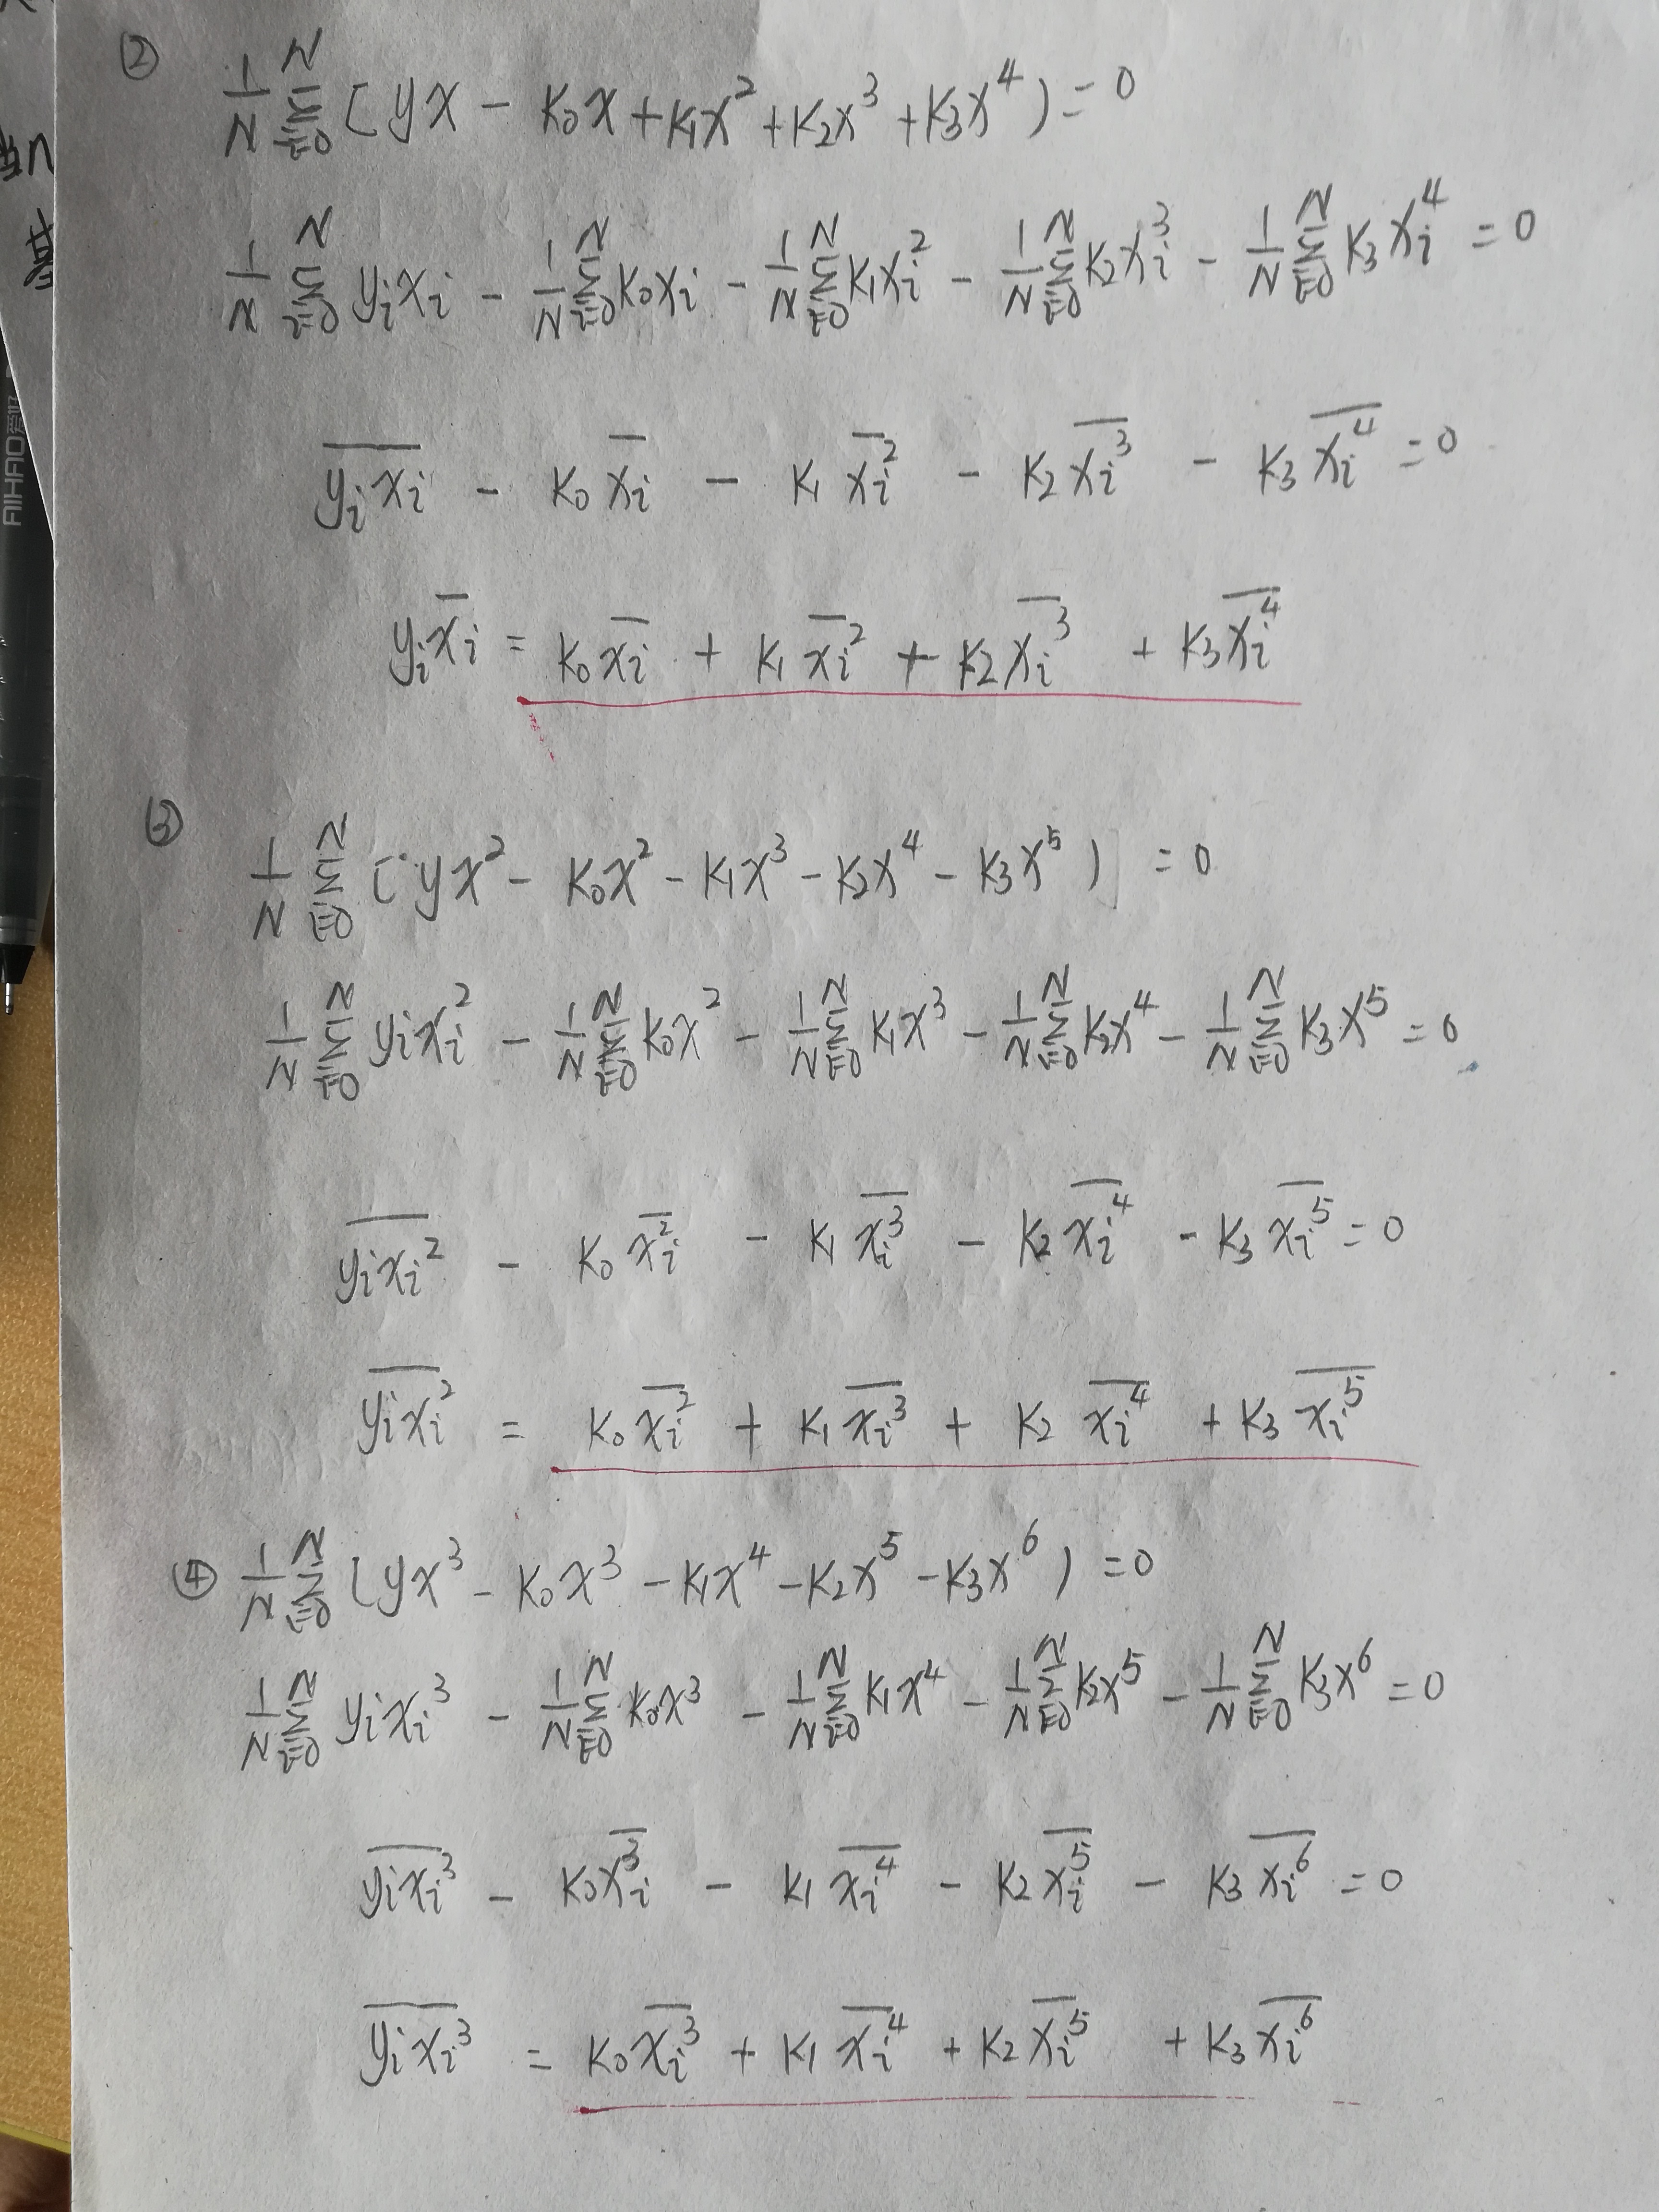 ②
\frac{1}{N}\sum_{i=0}^{N}[yx - k_0x + k_1x^2 + k_2x^3 + k_3x^4) = 0
\frac{1}{N}\sum_{i=0}^{N} y_ix_i - \frac{1}{N}\sum_{i=0}^{N}k_0x_i - \frac{1}{N}\sum_{i=0}^{N}k_1x_i^2 - \frac{1}{N}\sum_{i=0}^{N}k_2x_i^3 - \frac{1}{N}\sum_{i=0}^{N}k_3x_i^4 = 0
\overline{y_ix_i} - k_0\overline{x_i} - k_1\overline{x_i^2} - k_2\overline{x_i^3} - k_3\overline{x_i^4} = 0
y_i\overline{x_i} = k_0\overline{x_i} + k_1\overline{x_i}^2 + k_2\overline{x_i}^3 + k_3\overline{x_i^4}
③
\frac{1}{N}\sum_{i=0}^{N}[yx^2 - k_0x^2 - k_1x^3 - k_2x^4 - k_3x^5)] = 0
\frac{1}{N}\sum_{i=0}^{N} y_ix_i^2 - \frac{1}{N}\sum_{i=0}^{N}k_0x^2 - \frac{1}{N}\sum_{i=0}^{N}k_1x^3 - \frac{1}{N}\sum_{i=0}^{N}k_2x^4 - \frac{1}{N}\sum_{i=0}^{N}k_3x^5 = 0
\overline{y_ix_i^2} - k_0\overline{x_i^2} - k_1\overline{x_i^3} - k_2\overline{x_i^4} - k_3\overline{x_i^5} = 0
\overline{y_ix_i^2} = k_0\overline{x_i^2} + k_1\overline{x_i^3} + k_2\overline{x_i^4} + k_3\overline{x_i^5}
④ \frac{1}{N}\sum_{i=0}^{N}(yx^3 - k_0x^3 - k_1x^4 - k_2x^5 - k_3x^6) = 0
\frac{1}{N}\sum_{i=0}^{N} y_ix_i^3 - \frac{1}{N}\sum_{i=0}^{N}k_0x^3 - \frac{1}{N}\sum_{i=0}^{N}k_1x^4 - \frac{1}{N}\sum_{i=0}^{N}k_2x^5 - \frac{1}{N}\sum_{i=0}^{N}k_3x^6 = 0
\overline{y_ix_i^3} - k_0\overline{x_i^3} - k_1\overline{x_i^4} - k_2\overline{x_i^5} - k_3\overline{x_i^6} = 0
\overline{y_ix_i^3} = k_0\overline{x_i^3} + k_1\overline{x_i^4} + k_2\overline{x_i^5} + k_3\overline{x_i^6}
AIHAO爱好